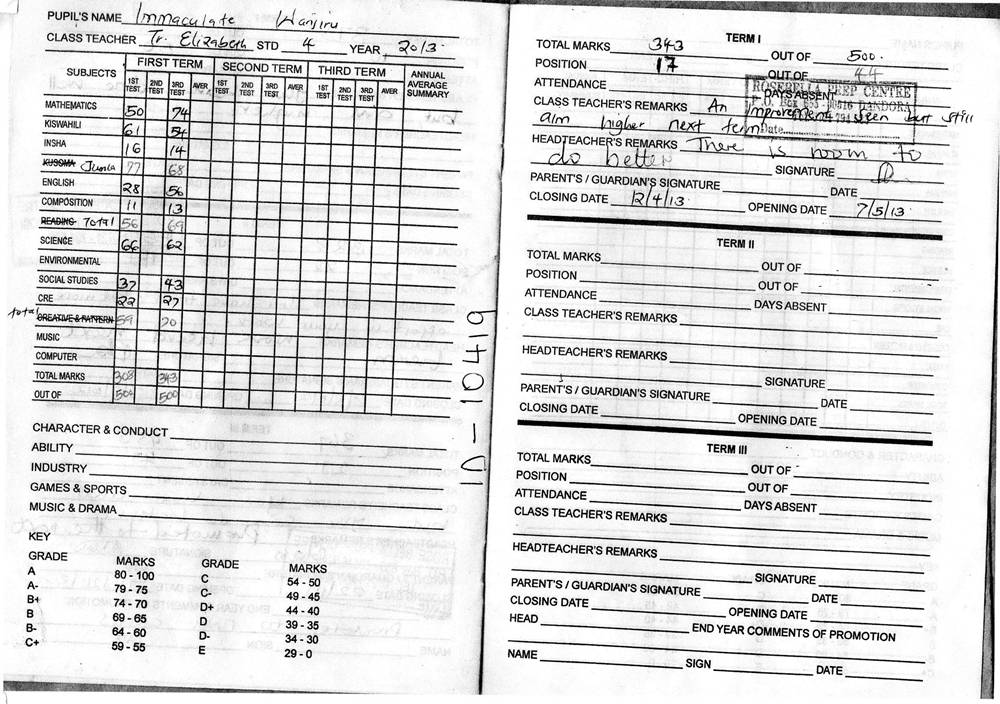 PUPIL'S NAME Immaculate Wanjiru
CLASS TEACHER Tr. Elizabeth STD 4 YEAR 2013.
SUBJECTS FIRST TERM SECOND TERM THIRD TERM ANNUAL AVERAGE SUMMARY
1ST TEST 2ND TEST 3RD TEST AVER 1ST TEST 2ND TEST 3RD TEST AVER 1ST TEST 2ND TEST 3RD TEST AVER
MATHEMATICS 50 74
KISWAHILI 61 54
INSHA 16 14
KUSOMA Jumla 77 68
ENGLISH 28 56
COMPOSITION 11 13
READING Total 56 69
SCIENCE 66 62
ENVIRONMENTAL
SOCIAL STUDIES 37 43
CRE 22 27
total CREATIVE & PATTERN 59 70
MUSIC
COMPUTER
TOTAL MARKS 308 343
OUT OF 500 500
CHARACTER & CONDUCT
ABILITY
INDUSTRY
GAMES & SPORTS
MUSIC & DRAMA
KEY
GRADE MARKS GRADE MARKS
A 80 - 100 C 54 - 50
A- 79 - 75 C- 49 - 45
B+ 74 - 70 D+ 44 - 40
B 69 - 65 D 39 - 35
B- 64 - 60 D- 34 - 30
C+ 59 - 55 E 29 - 0
10-10419
TERM I
TOTAL MARKS 343 OUT OF 500.
POSITION 17 OUT OF 44
ATTENDANCE DAYS ABSENT
ROSEBELLA PREP CENTRE
DANDORA
Date
CLASS TEACHER'S REMARKS An improvement seen but still
aim higher next term
HEADTEACHER'S REMARKS There is room to
do better SIGNATURE
PARENT'S / GUARDIAN'S SIGNATURE DATE
CLOSING DATE 12/4/13. OPENING DATE 7/5/13.
TERM II
TOTAL MARKS OUT OF
POSITION OUT OF
ATTENDANCE DAYS ABSENT
CLASS TEACHER'S REMARKS
HEADTEACHER'S REMARKS
SIGNATURE
PARENT'S / GUARDIAN'S SIGNATURE DATE
CLOSING DATE OPENING DATE
TERM III
TOTAL MARKS OUT OF
POSITION OUT OF
ATTENDANCE DAYS ABSENT
CLASS TEACHER'S REMARKS
HEADTEACHER'S REMARKS
SIGNATURE
PARENT'S / GUARDIAN'S SIGNATURE DATE
CLOSING DATE OPENING DATE
HEAD END YEAR COMMENTS OF PROMOTION
NAME SIGN DATE